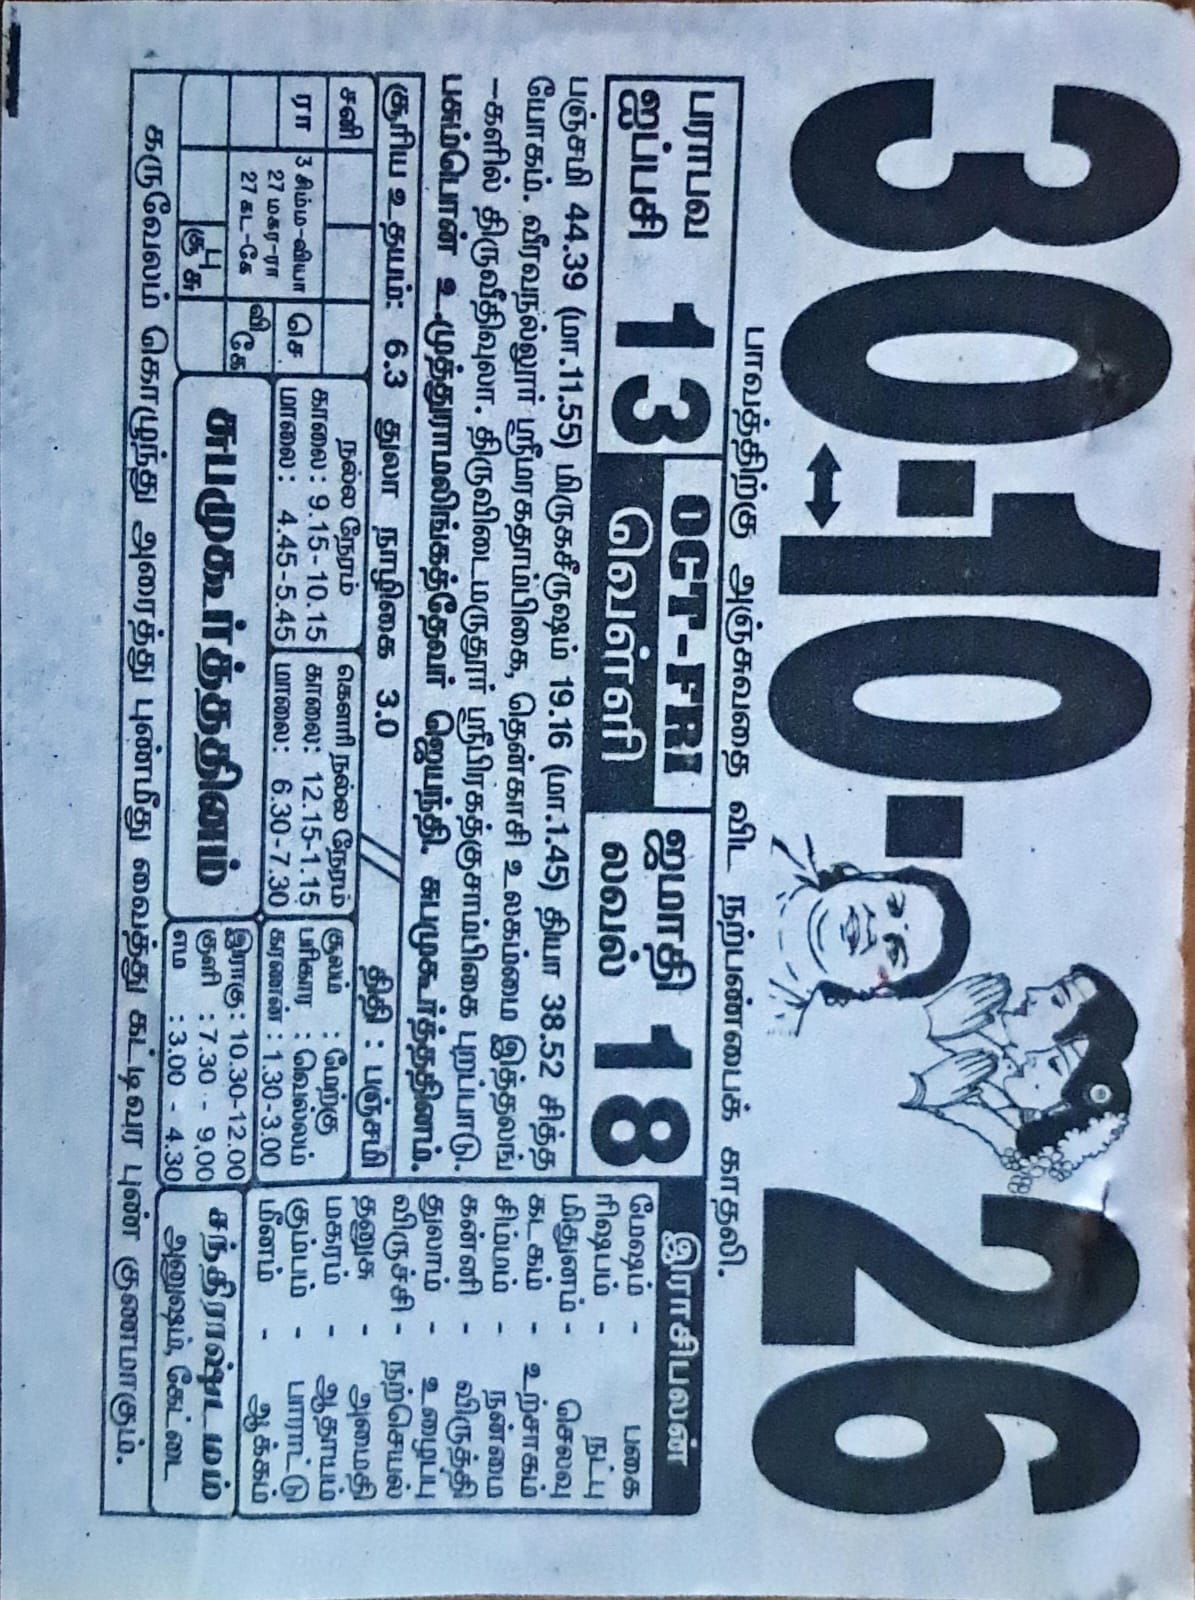 30-10-26
பாவத்திற்கு அஞ்சுவதை விட நற்பண்பைக் காதலி.
பராபவ
ஐப்பசி 13
OCT-FRI
வெள்ளி
ஜமாதி
லவல் 18
பஞ்சமி 44.39 (மா.11.55) மிருகசீருஷம் 19.16 (மா.1.45) தியா 38.52 சித்த
யோகம். வீரவநல்லூர் ஸ்ரீமரகதாம்பிகை, தென்காசி உலகம்மை இத்தலங்
-களில் திருவீதிவுலா. திருவிடைமருதூர் ஸ்ரீபிரகத்குசாம்பிகை புறப்பாடு.
பசும்பொன் உ.முத்துராமலிங்கத்தேவர் ஜெயந்தி. சுபமுகூர்த்ததினம்.
சூரிய உதயம்: 6.3 துலா நாழிகை 3.0 // திதி : பஞ்சமி
சனி
ரா
3 சிம்ம-வியா
27 மகர-ரா
27 கட-கே
செ.
வி
கே
சூ சு
நல்ல நேரம்
காலை: 9.15-10.15
மாலை: 4.45-5.45
கௌரி நல்ல நேரம்
காலை: 12.15-1.15
மாலை: 6.30-7.30
சூலம் : மேற்கு
பரிகார : வெல்லம்
கரணன் : 1.30-3.00
சுபமுகூர்த்ததினம்
இராகு : 10.30-12.00
குளி : 7.30 - 9.00
எம : 3.00 - 4.30
இராசிபலன்
மேஷம் - பகை
ரிஷபம் - நட்பு
மிதுனம் - செலவு
கடகம் - உற்சாகம்
சிம்மம் - நன்மை
கன்னி - விருத்தி
துலாம் - உழைப்பு
விருச்சி - நற்செயல்
தனுசு - அமைதி
மகரம் - ஆதாயம்
கும்பம் - பாராட்டு
மீனம் - ஆக்கம்
சந்திராஷ்டமம்
அனுஷம், கேட்டை
கருவேலம் கொழுந்து அரைத்து புண்மீது வைத்து கட்டிவர புண் குணமாகும்.